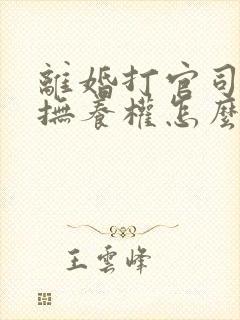 離婚打官司
撫養權怎麼
王雲峰